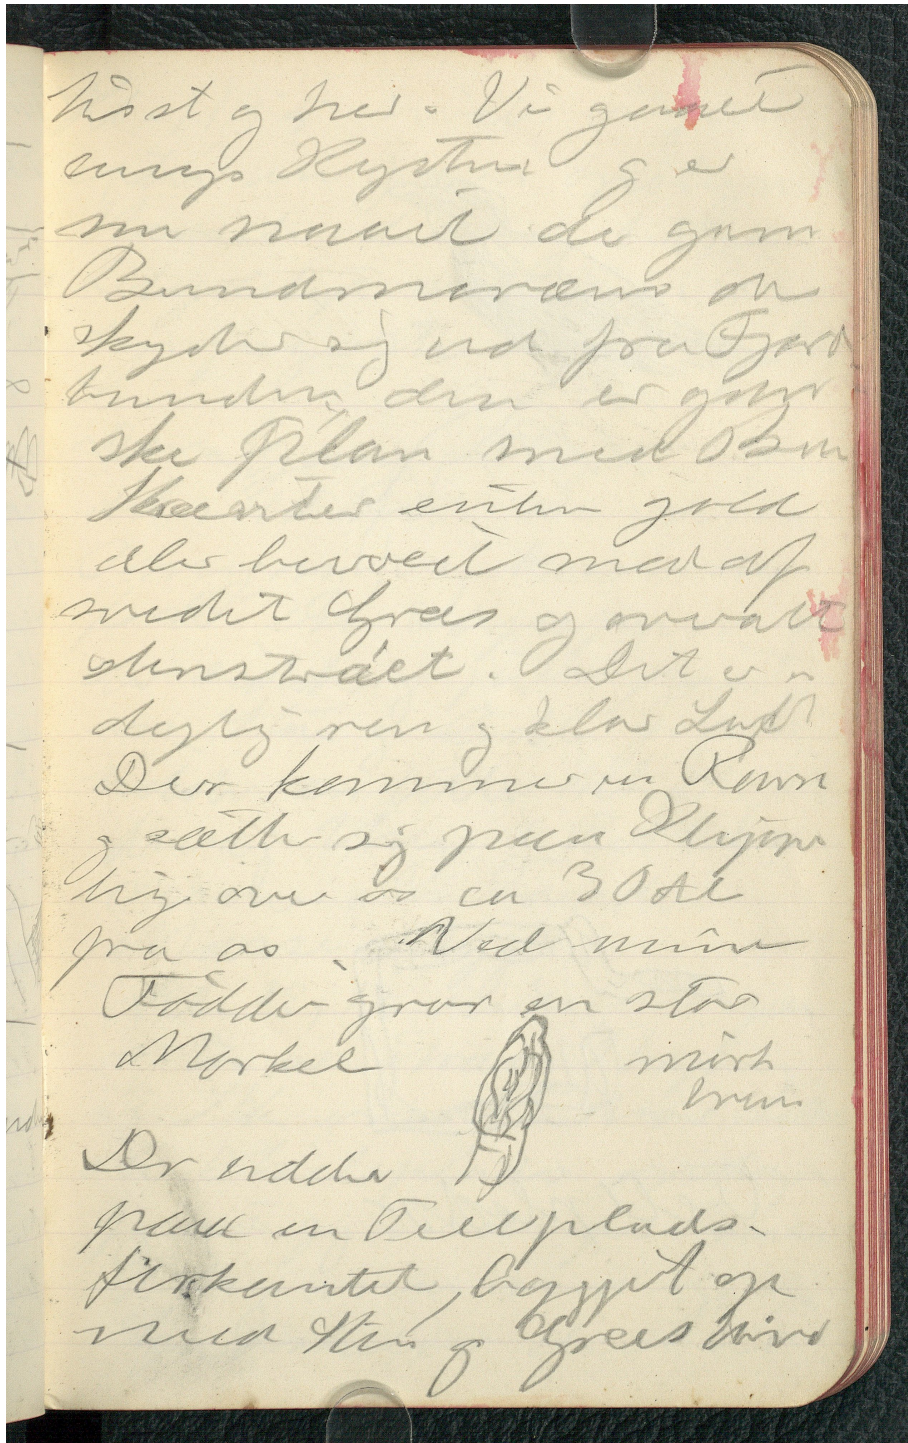 hist og her. Vi gaaet
langs Kysten og er
nu naaet de gam
Bundmoræne der
skyder sig ud fra Fjord
bunden, den er gan
ske plan med
Skrænter enten gold
eller bevoxet med af
svedet Græs og overalt
stenstrøet. Det er
dejlig ren og klar Luft
Der kommer en Ravn
og sætter sig paa Klippe
lige over os ca 30 Al
fra os. Ved mine
Fødder gror en stor
Morkel mørk
brun
Der sidder
paa en Teltplads.
firkantet, bygget op
med Sten og Græs